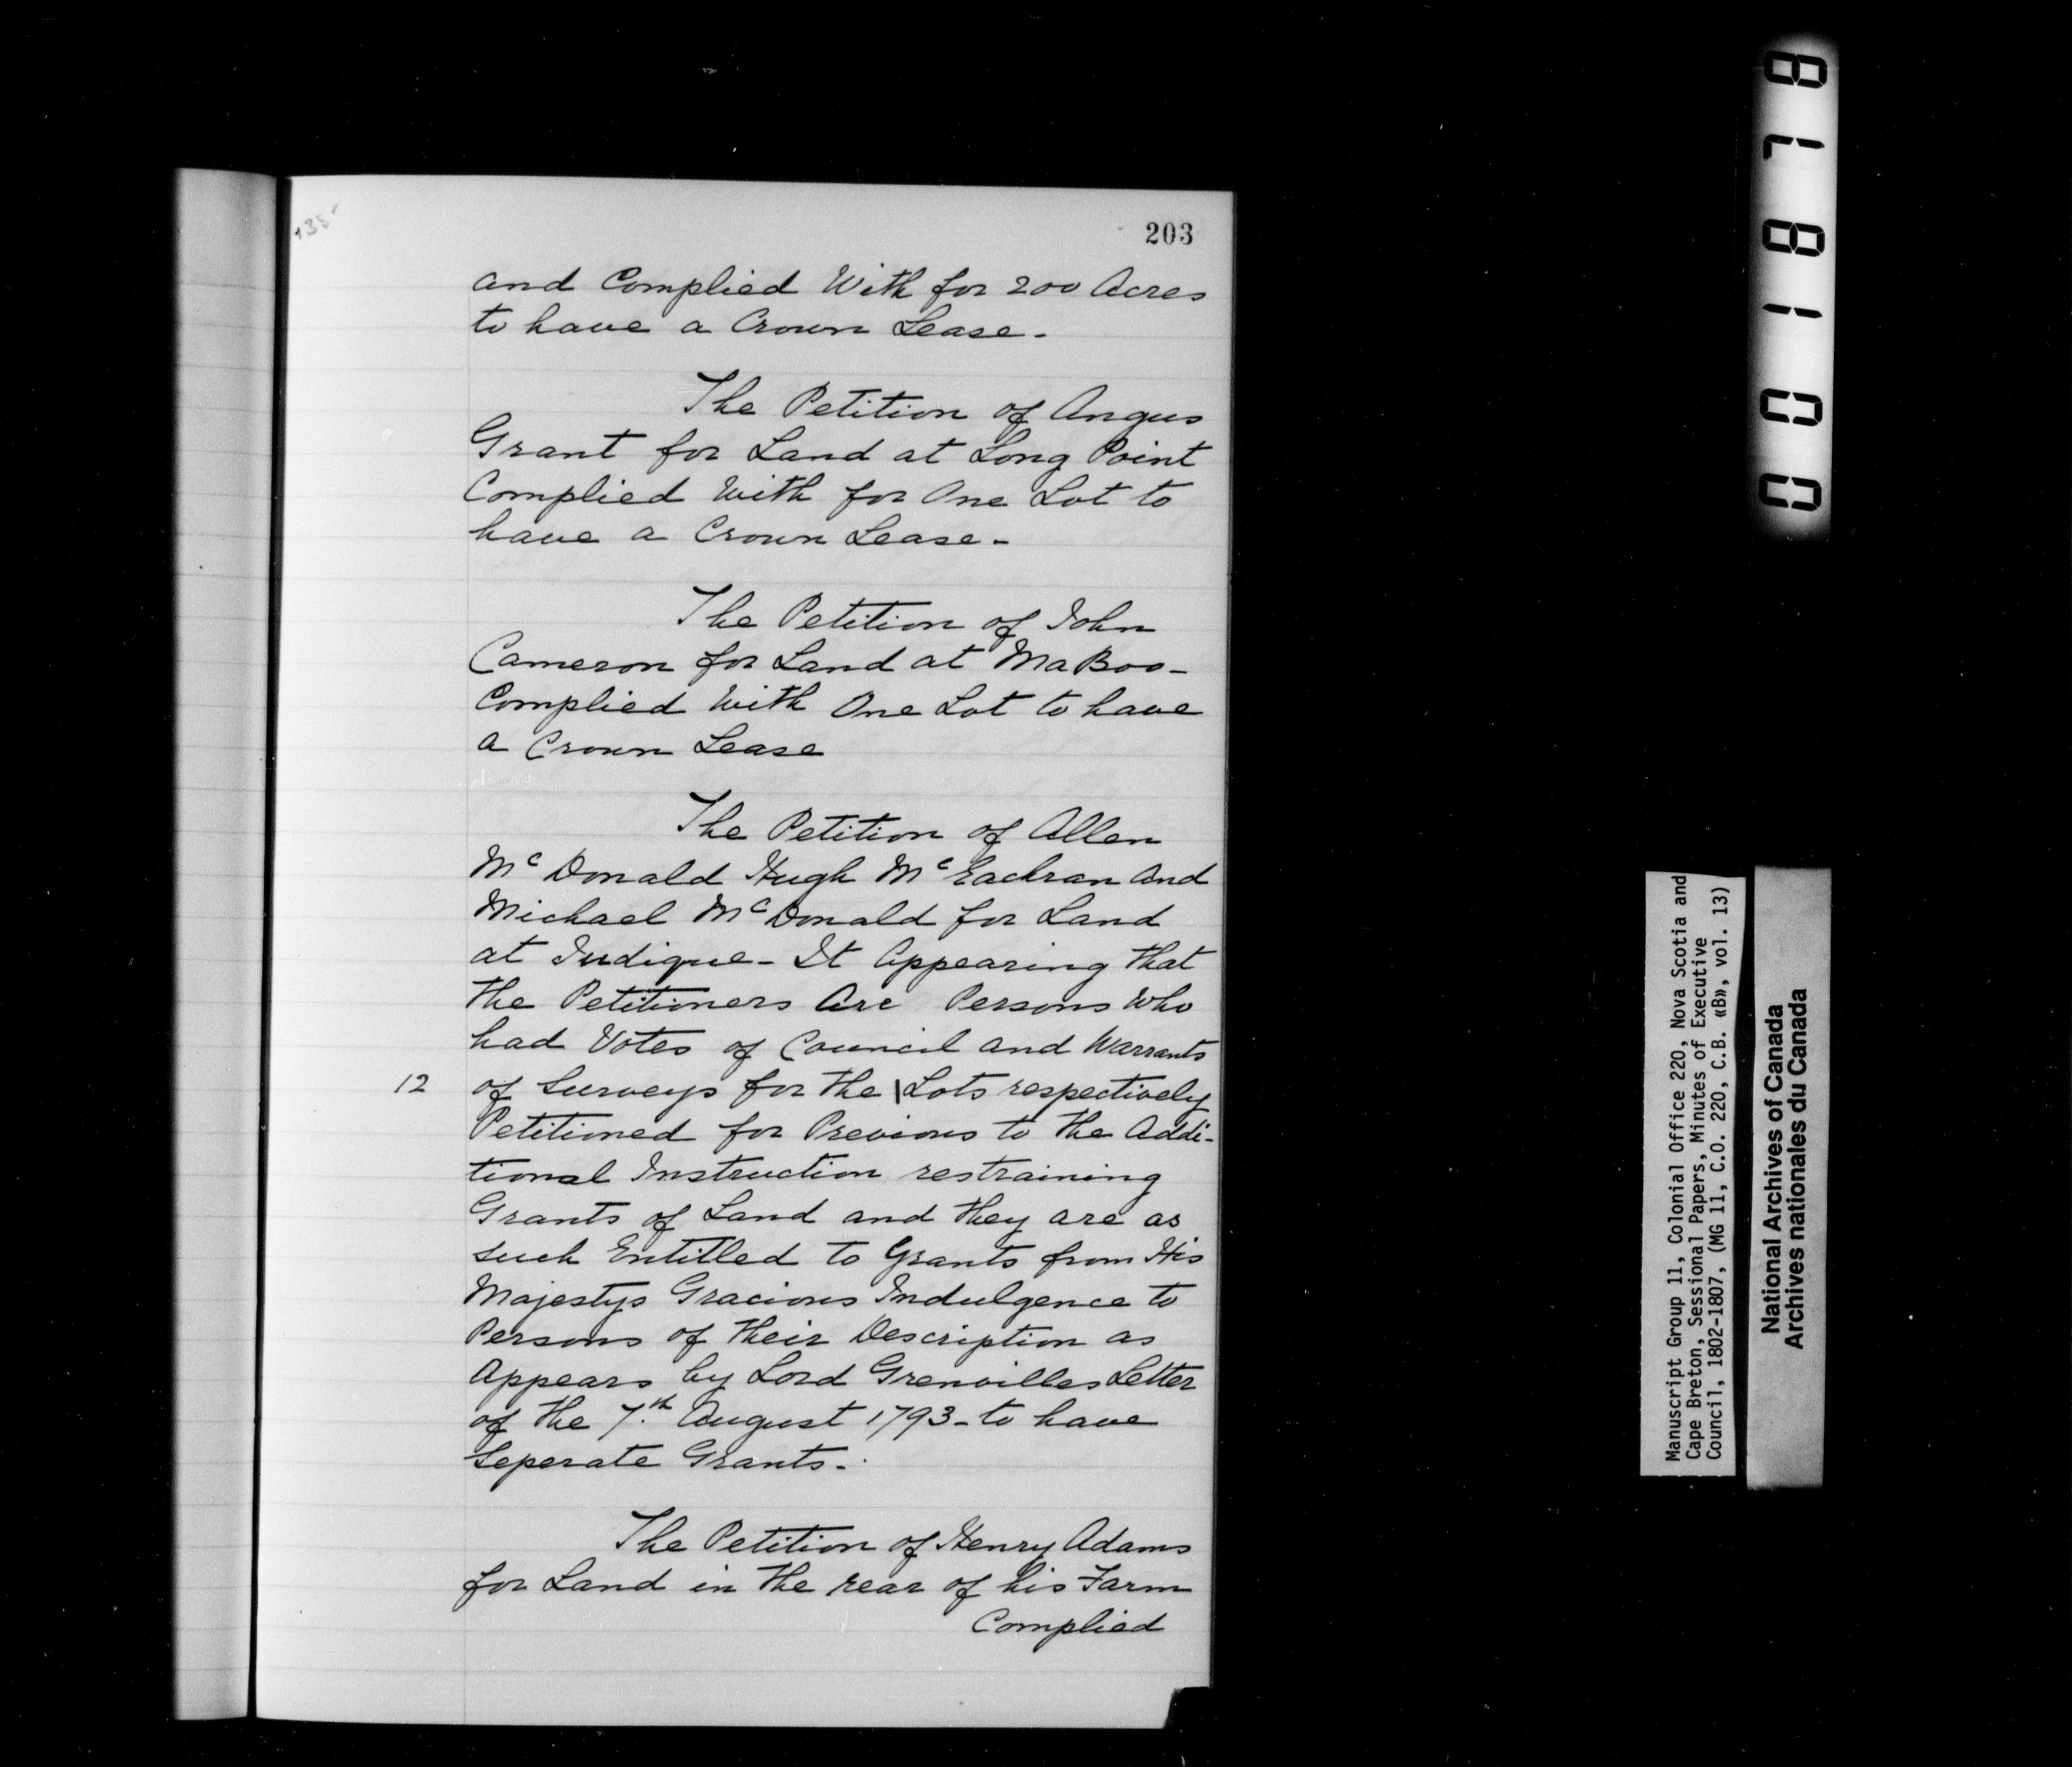 203
and Complied With for 200 Acres
to have a Crown Lease-
The Petition of Angus
Grant for Land at Long Point
Complied With for One Lot to
have a Crown Lease-
The Petition of John
Cameron for Land at MaBoo-
Complied With One Lot to have
a Crown Lease
The Petition of Allen
Mc Donald Hugh Mc Eachran and
Michael Mc Donald for Land
at Judique- It Appearing that
the Petitioners Are Persons Who
had Votes of Council and Warrants
12 of Surveys for the \ Lots respectively
Petitioned for Previous to the Addi-
tional Instruction restraining
Grants of Land and they are as
such Entitled to Grants from His
Majestys Gracious Indulgence to
Persons of their Description as
Appears by Lord Grenvilles Letter
of the 7.th August 1793- to have
Seperate Grants-
The Petition of Henry Adams
for Land in the rear of his Farm
Complied
001878
Manuscript Group 11, Colonial Office 220, Nova Scotia and
Cape Breton, Sessional Papers, Minutes of Executive
Council, 1802-1807, (MG 11, C.O. 220, C.B. «B», vol. 13)
National Archives of Canada
Archives nationales du Canada